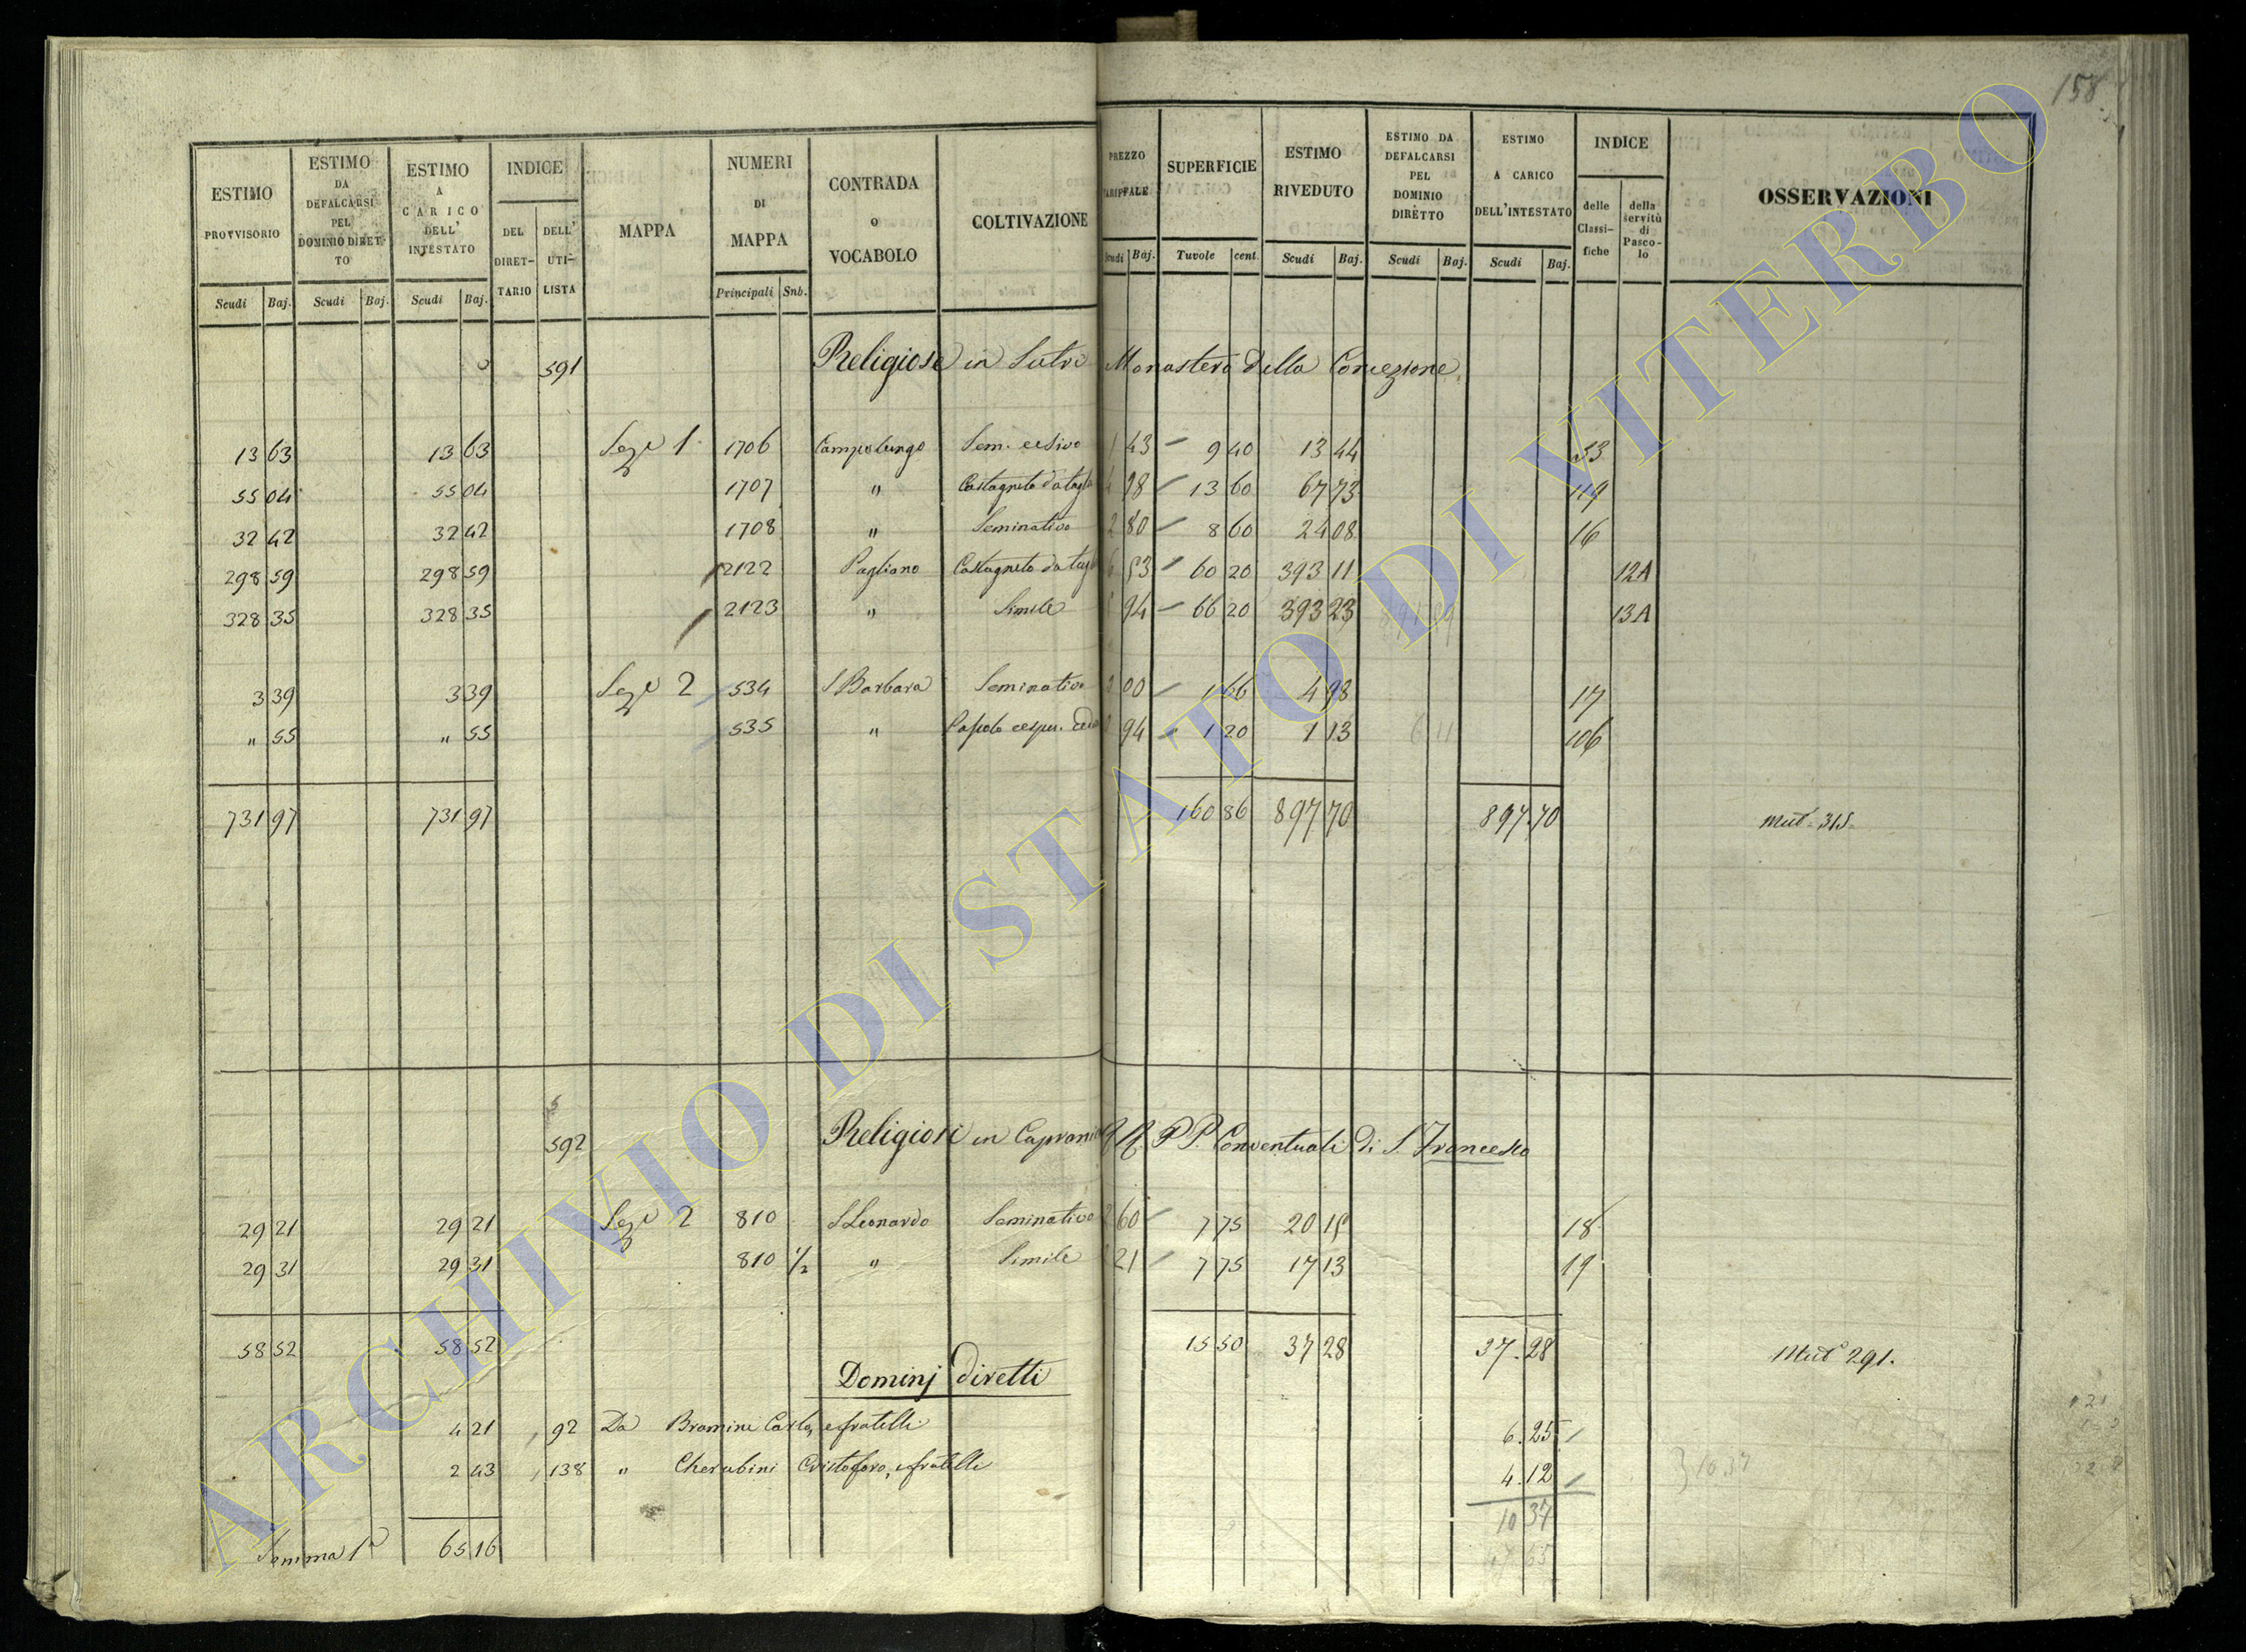 158
ESTIMO PROVVISORIO Scudi Baj.
ESTIMO DA DEFALCARSI PEL DOMINIO DIRETTO Scudi Baj.
ESTIMO A CARICO DELL' INTESTATO Scudi Baj.
INDICE DEL DIRETTARIO DELL' UTILISTA
MAPPA
NUMERI DI MAPPA Principali Snb.
CONTRADA o VOCABOLO
COLTIVAZIONE
PREZZO TARIFFALE Scudi Baj.
SUPERFICIE Tuvole cent.
ESTIMO RIVEDUTO Scudi Baj.
ESTIMO DA DEFALCARSI PEL DOMINIO DIRETTO Scudi Baj.
ESTIMO A CARICO DELL'INTESTATO Scudi Baj.
INDICE delle Classifiche della servitù di Pascolo
OSSERVAZIONI
591 Religiose in Sutri Monastero della Concezione
13 63 13 63 Sez.e 1. 1706 Campolungo Sem. 1 43 9 40 13 44 53
55 04 55 04 1707 " Castagneto da taglio 98 13 60 67 73 119
32 42 32 42 1708 " Seminativo 2 80 8 60 24 08 16
298 59 298 59 2122 Pagliano Castagneto da taglio 6 53 60 20 393 11 12A
328 35 328 35 2123 " Simile 94 66 20 393 23 13A
3 39 3 39 Sez.e 2 534 S Barbara Seminativo 00 1 66 4 98 17
" 55 " 55 535 " cespu. 94 1 20 1 13 106
731 97 731 97 160 86 897 70 897.70 Mut. 315
592 Religiosi in Capranica PP. Conventuali di S. Francesco
29 21 29 21 Sez.e 2 810 S Leonardo Seminativo 60 7 75 20 15 18
29 31 29 31 810 1/2 " Simile 21 7 75 17 13 19
58 52 58 52 15 50 37 28 37.28 Mut.e 291.
Dominj diretti
4 21 92 Da Bramini Carlo, e fratelli 6.25
2 43 138 " Cherubini Cristoforo, e fratelli 4.12 10 37
10 37
Somma 1a 65 16 47 65
ARCHIVIO DI STATO DI VITERBO